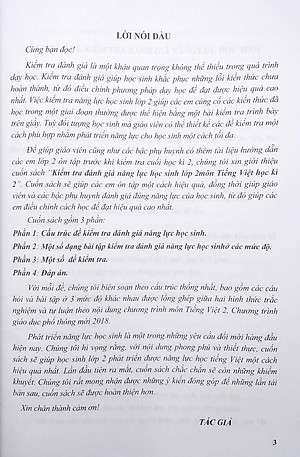 LỜI NÓI ĐẦU
Cùng bạn đọc!
Kiểm tra đánh giá là một khâu quan trọng không thể thiếu trong quá trình
dạy học. Kiểm tra đánh giá giúp học sinh khắc phục những lỗi kiến thức chưa
hoàn thành, từ đó điều chỉnh phương pháp dạy học để đạt được hiệu quả cao
nhất. Việc kiểm tra năng lực học sinh lớp 2 giúp các em củng cố các kiến thức đã
học trong một giai đoạn thường được thể hiện bằng một bài kiểm tra trình bày
trên giấy. Tuỳ đối tượng học sinh mà giáo viên có thể thiết kế các đề kiểm tra một
cách phù hợp nhằm phát triển năng lực cho học sinh một cách tối đa.
Để giúp giáo viên cũng như các bậc phụ huynh có thêm tài liệu hướng dẫn
các em lớp 2 ôn tập trước khi kiểm tra cuối học kì 2, chúng tôi xin giới thiệu
cuốn sách "Kiểm tra đánh giá năng lực học sinh lớp 2môn Tiếng Việt học kì
2". Cuốn sách sẽ giúp các em ôn tập một cách hiệu quả, đồng thời giúp giáo viên
và các bậc phụ huynh đánh giá đúng năng lực của học sinh, từ đó giúp các
em điều chỉnh cách học để đạt hiệu quả cao nhất.
Cuốn sách gồm 3 phần:
Phần 1: Cấu trúc đề kiểm tra đánh giá năng lực học sinh.
Phần 2: Một số dạng bài tập kiểm tra đánh giá năng lực học sinhở các mức độ.
Phần 3: Một số đề kiểm tra.
Phần 4: Đáp án.
Với mỗi đề, chúng tôi biên soạn theo cấu trúc thống nhất, bao gồm các câu
hỏi và bài tập ở 3 mức độ khác nhau được lồng ghép giữa hai hình thức trắc
nghiệm và tự luận theo nội dung chương trình môn Tiếng Việt 2, Chương trình
giáo dục phổ thông mới 2018.
Phát triển năng lực học sinh là một trong những yêu cầu đổi mới hàng đầu
hiện nay. Chúng tôi hi vọng rằng, với nội dung phong phú và thiết thực, cuốn
sách sẽ giúp học sinh lớp 2 phát triển được năng lực học tiếng Việt một cách
hiệu quả nhất. Lần đầu tiên ra mắt, cuốn sách chắc chắn sẽ còn những khiếm
khuyết. Chúng tôi rất mong nhận được những ý kiến đóng góp để những lần tái
bản sau, cuốn sách sẽ được hoàn thiện hơn.
Xin chân thành cảm ơn!
TÁC GIẢ
3